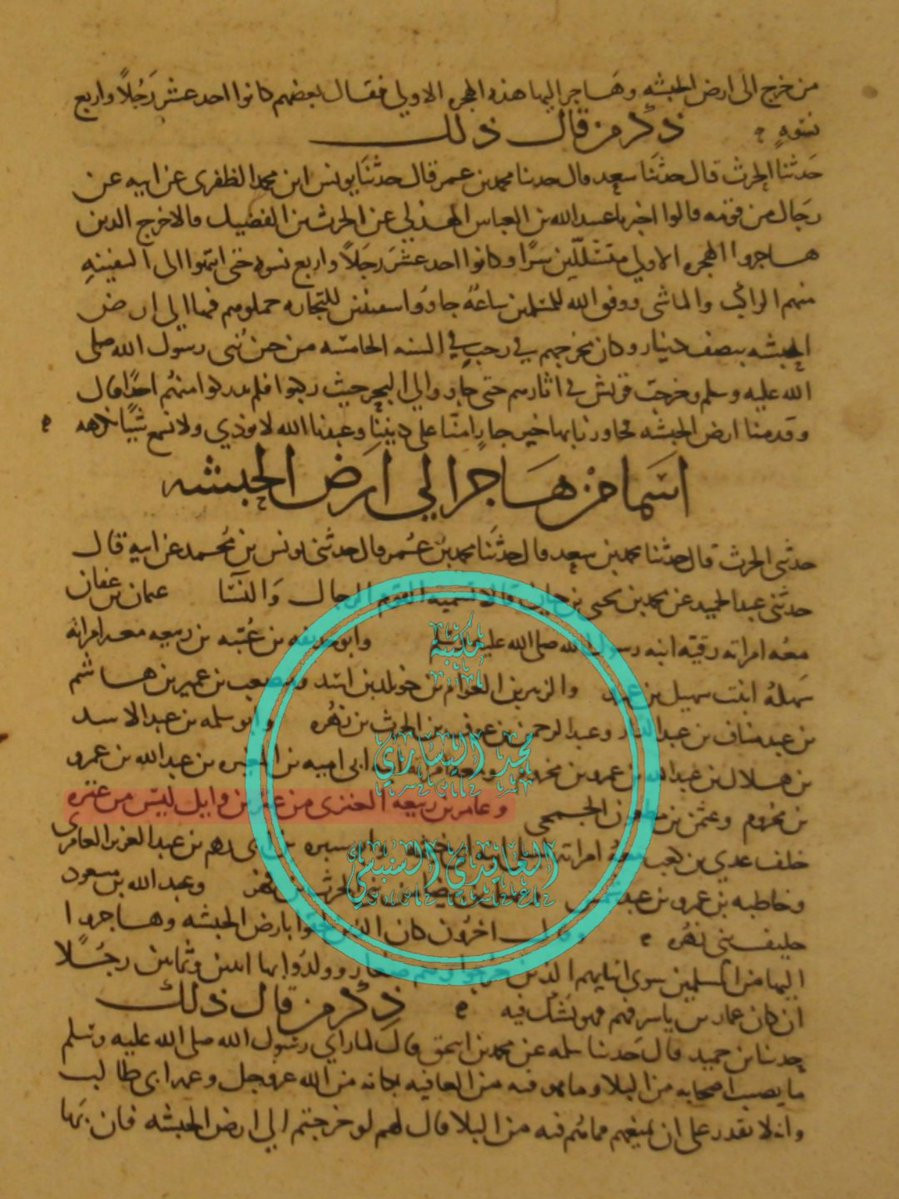 من خرج الى ارض الحبشه وهاجر اليها هذه الهجره الاولي فقال بعضهم كانوا احد عشر رَجُلاً واربع
نسوه ذكر من قال ذلك
حَدثنا الحرث قال حدثنا ابن سعد قال حدثنا محمد بن عمر قال حدثنا يونس ابن محمد الظفرى عن ابيه عن
رجال من قومه قالوا اخبرنا عبد الله بن العباس الهذلي عن الحرث بن الفضيل قالا خرج الذين
هاجروا الهجره الاولي متسللين سرًا وكانوا احد عشَر رَجلاً واربع نسوه حتى انتهوا الى السفينه
منهم الراكب والماشى ووفق الله للمسلمين ساعهُ جاووا سفينتين للتجاره حملوهم فيها الي ارض
الحبشه بنصف دينار وكان مخرجهم في رجب في السنه الخامسه من حين نبى رسول الله صلى
الله عليه وسلم وخرجت قريش في اثارهم حتى جاو االي البحر حيث ركبوا فلم يدركوا منهم احدًا قال
وقدمنا ارض الحبشه فجاورنا بها خير جار امنّا على ديننا وعبدنا الله لا نوذي ولا نسمع شيًا نكرهه
اسما من هاجر الي ارض الحبشه
حدثنى الحرث قال حدثنا محمد بن سعد قال حدثنا محمد بن عُمر قال حدثنى يونس بن محمد عن ابيه قال
حدثنى عبد الحميد عن محمد بن يحيى بن حبان قالا تسميه القوم الرجال والنسا عثمان بن عفان
معه امراته رقيه ابنه رسول الله صلى الله عليه وسلم وابو حذيفه بن عُتبه بن ربيعه معه امراته
سهلهُ ابنت سهيل بن عمرو والزبير بن العوام بن خويلد بن اسد ومصعب بن عمير بن هاشم
بن عبد مناف بن عبد الدار وعبد الرحمن بن عوف بن الحرث بن زهره وابو سلمه بن عبد الاسد
بن هلال بن عبد الله بن عمرو بن مخزوم ابى اميه بن المغيره بن عبد الله بن عمرو
بن مخزوم وعثمن بن مظعون الجمحي وعامر بن ربيعه العنزى من عنز بن وايل ليس من عنزه
خلف عدي بن كعب معه امراته بن ابى رهم بن عبد العزى العامرى
وحاطب بن عمرو بن عبد شمس وعبد الله بن مسعود
حليف بنى زهره وقال اخرون كان الذين لحقوا بارض الحبشه وهاجروا
اليها من المسلمين سوى ابنايهم الذين خرجوا بهم صغارا وولدوا بها اثنين وثمانين رجُلاً
ان كان عمار بن ياسر فيهم فهو يشك فيه ذكر من قال ذلك
حدثنا بن حميد قال حدثنا سلمه عن محمد بن اسحق قال لما راى رسُول الله صلى الله عليه وسَلم
ما يصيب اصحابه من البلا وما هو فيه من العافيه بمكانه من الله عز وجل وعمه ابى طالب
وانه لا يقدر على ان يمنعهم مما هم فيه من البلا قال لهم لو خرجتم الي ارض الحبشه فان بها
مكتبة
محمد الساري
العايدي السنبلي